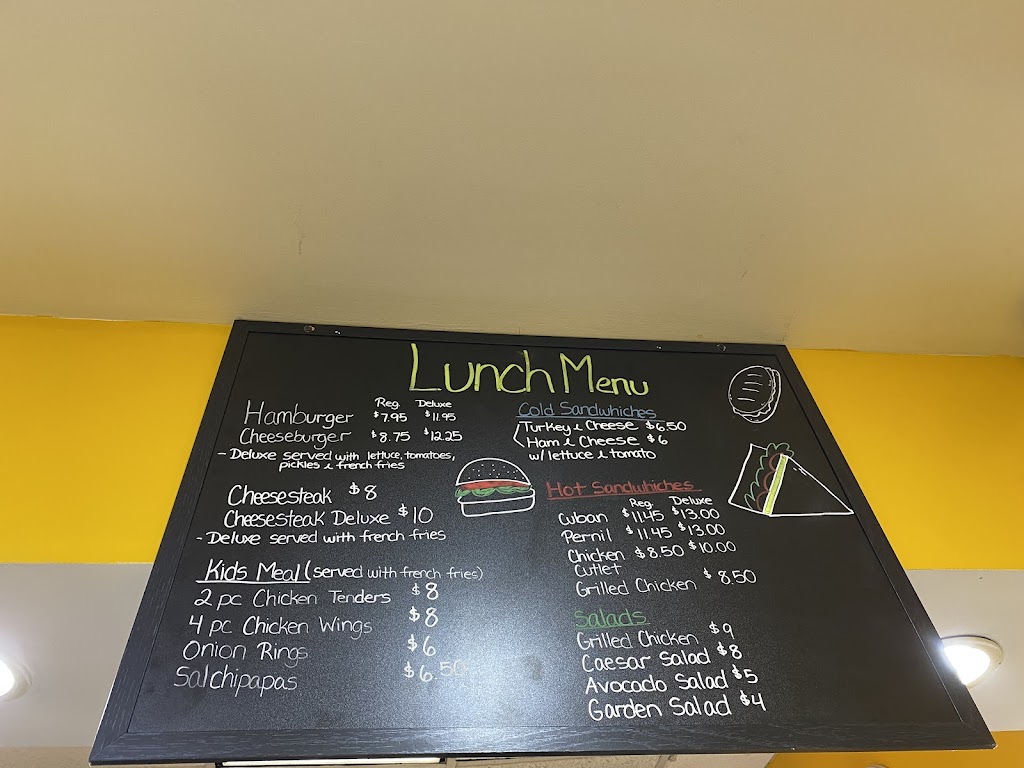 Lunch Menu
Reg. Deluxe
Hamburger $7.95 $11.95
Cheeseburger $8.75 $12.25
- Deluxe served with lettuce, tomatoes,
pickles & french fries
Cheesesteak $8
Cheesesteak Deluxe $10
- Deluxe served with french fries
Kids Meal (served with french fries)
2 pc Chicken Tenders $8
4 pc Chicken Wings $8
Onion Rings $6
Salchipapas $6.50
Cold Sandwhiches
Turkey & Cheese $6.50
Ham & Cheese $6
w/ lettuce & tomato
Hot Sandwhiches
Reg. Deluxe
Cuban $11.45 $13.00
Pernil $11.45 $13.00
Chicken $8.50 $10.00
Cutlet
Grilled Chicken $8.50
Salads
Grilled Chicken $9
Caesar Salad $8
Avocado Salad $5
Garden Salad $4